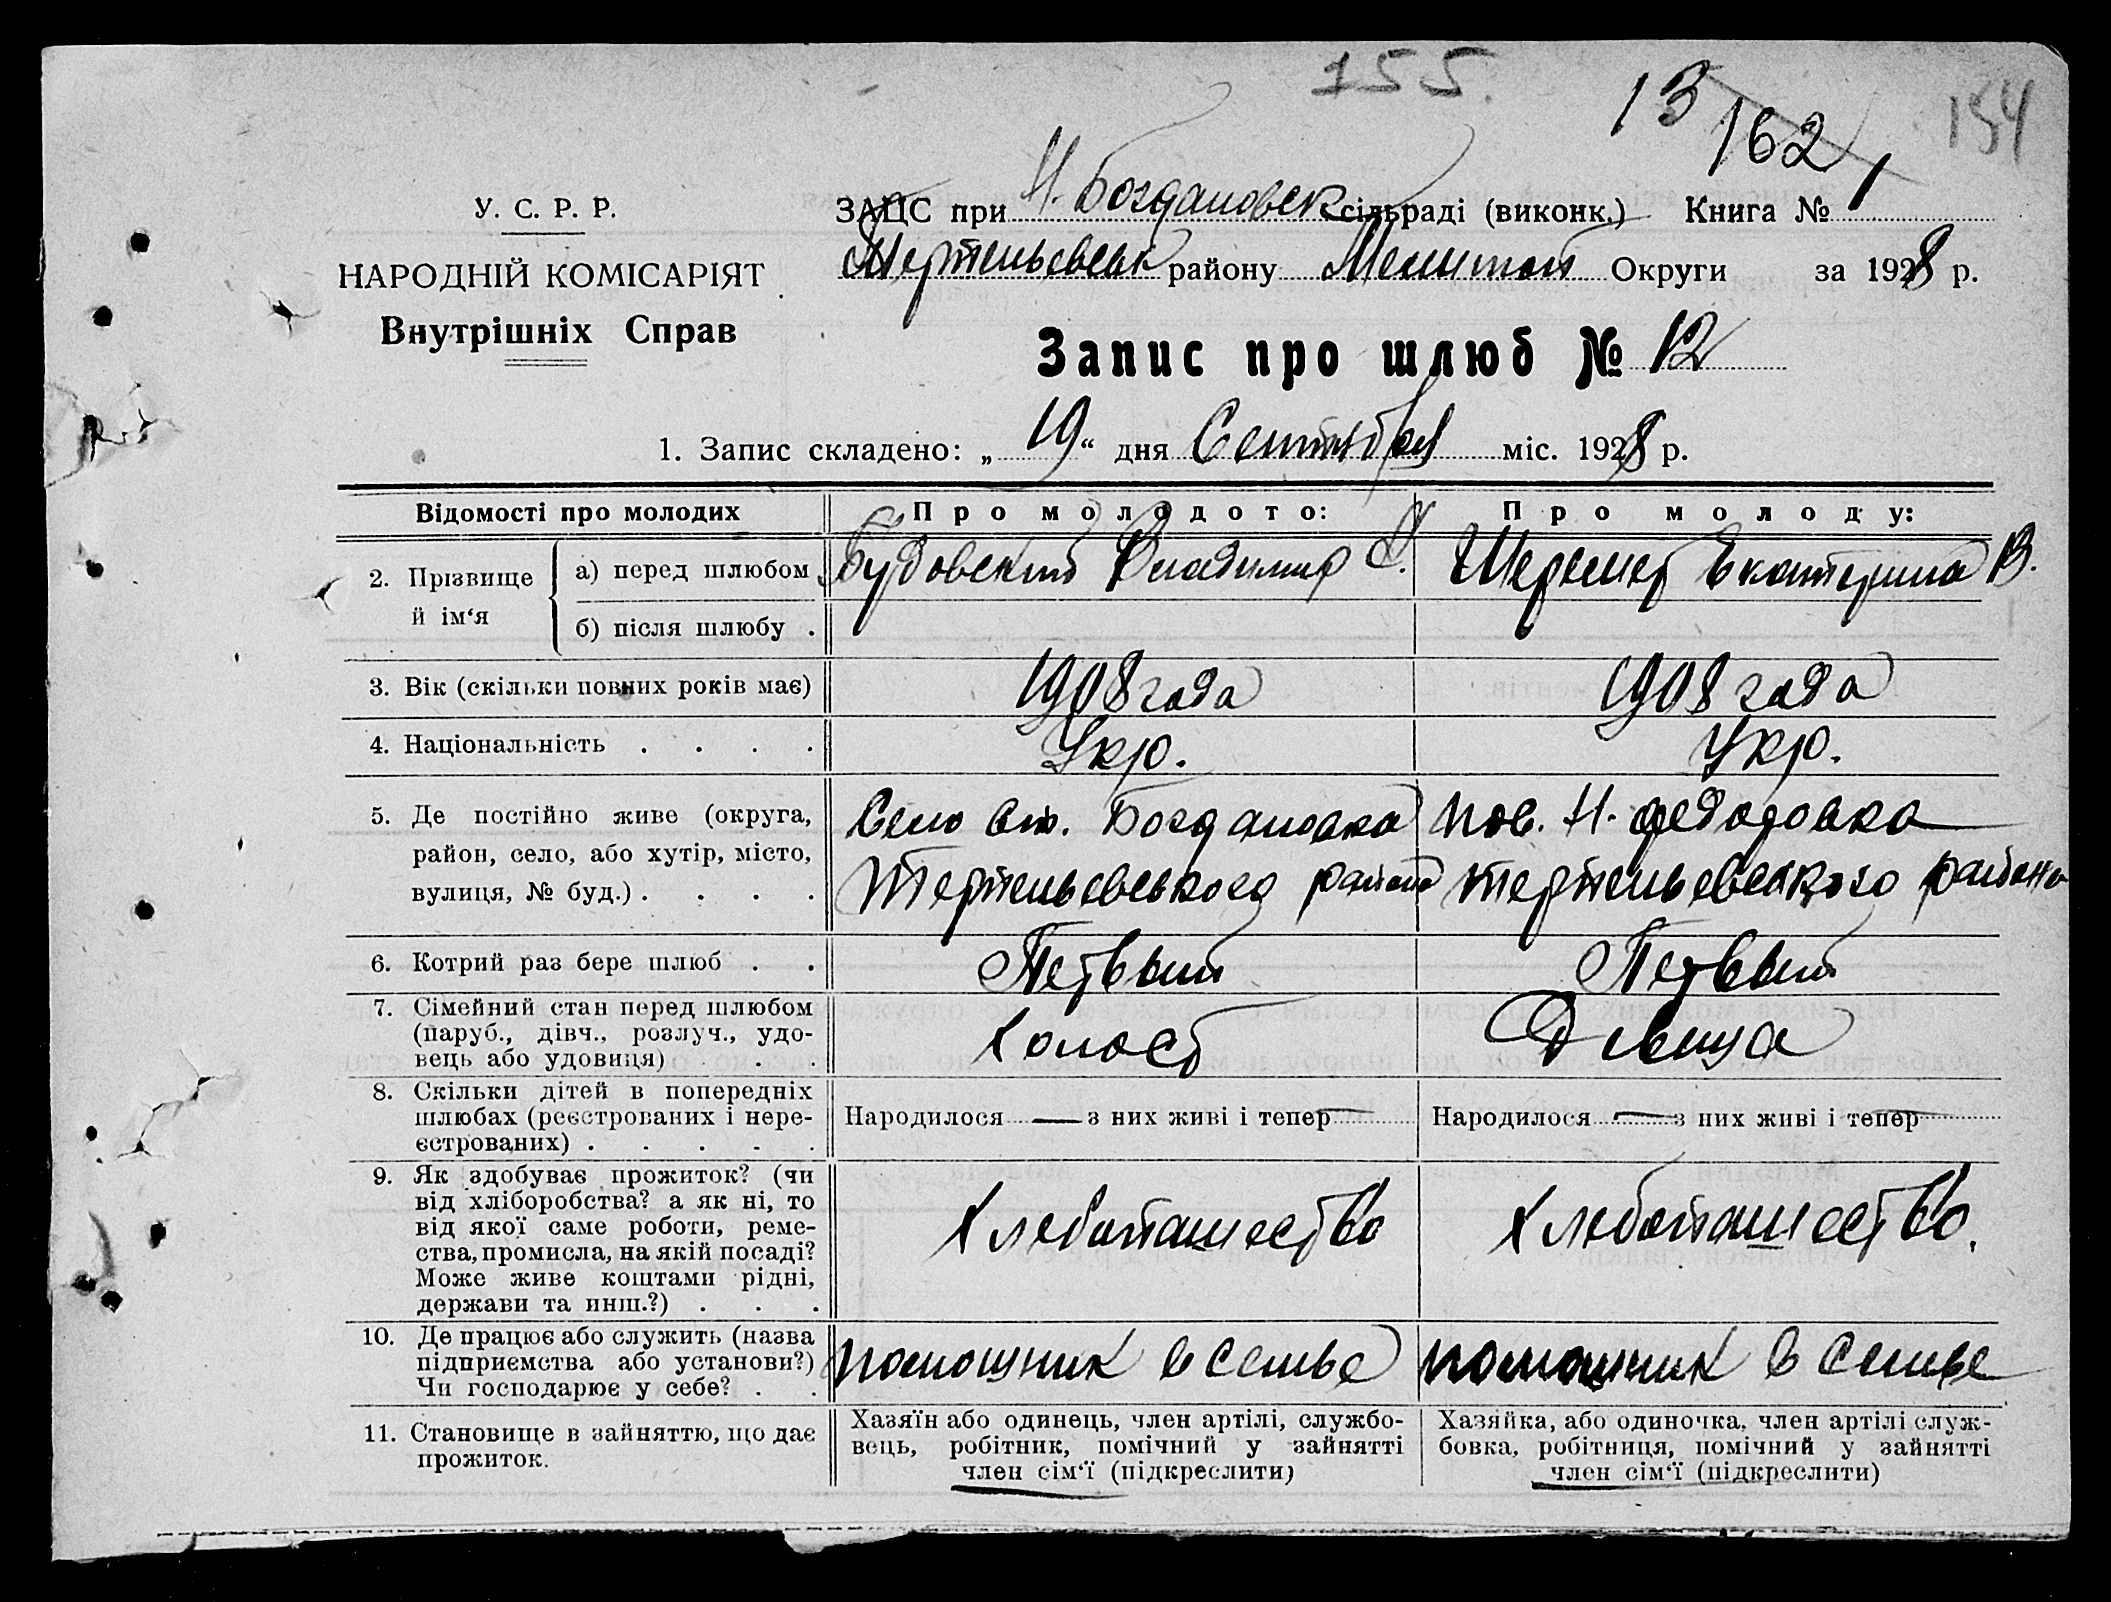 155.
13
162
154
У. С. Р. Р.
НАРОДНІЙ КОМІСАРІЯТ
Внутрішніх Справ
ЗАЦС при Н. Богдановск сільраді (виконк.) Книга № 1
Терпеньевськ району Мелитоп Округи за 1928 р.
Запис про шлюб № 12
1. Запис складено: „ 19 “ дня Сентября міс. 1928 р.
Відомості про молодих
Про молодого:
Про молоду:
2. Прізвище й ім‘я
а) перед шлюбом
Будовский Владимир
Шеремет Екатерина В.
б) після шлюбу .
3. Вік (скільки повних років має)
1908 года
1908 года
4. Національність . . . .
Укр.
Укр.
5. Де постійно живе (округа,
район, село, або хутір, місто,
вулиця, № буд.) . . . .
Село Ст. Богдановка
Терпеньевського района
пос. Н. Федодовка
Терпеньевського района
6. Котрий раз бере шлюб . .
Первый
Первый
7. Сімейний стан перед шлюбом
(паруб., дівч., розлуч., удо-
вець або удовиця) . .
Холост
Девица
8. Скільки дітей в попередніх
шлюбах (реєстрованих і нере-
єстрованих) . . . . .
Народилося — з них живі і тепер —
Народилося — з них живі і тепер —
9. Як здобуває прожиток? (чи
від хліборобства? а як ні, то
від якої саме роботи, реме-
ства, промисла, на якій посаді?
Може живе коштами рідні,
держави та инш.?) . . .
Хлебопашество
Хлебопашество.
10. Де працює або служить (назва
підприємства або установи?)
Чи господарює у себе? . .
помощник в семье
помощник в семье
11. Становище в зайняттю, що дає
прожиток.
Хазяїн або одинець, член артілі, службо-
вець, робітник, помічний у зайнятті
член сім‘ї (підкреслити)
Хазяйка, або одиночка, член артілі служ-
бовка, робітниця, помічний у зайнятті
член сім‘ї (підкреслити)